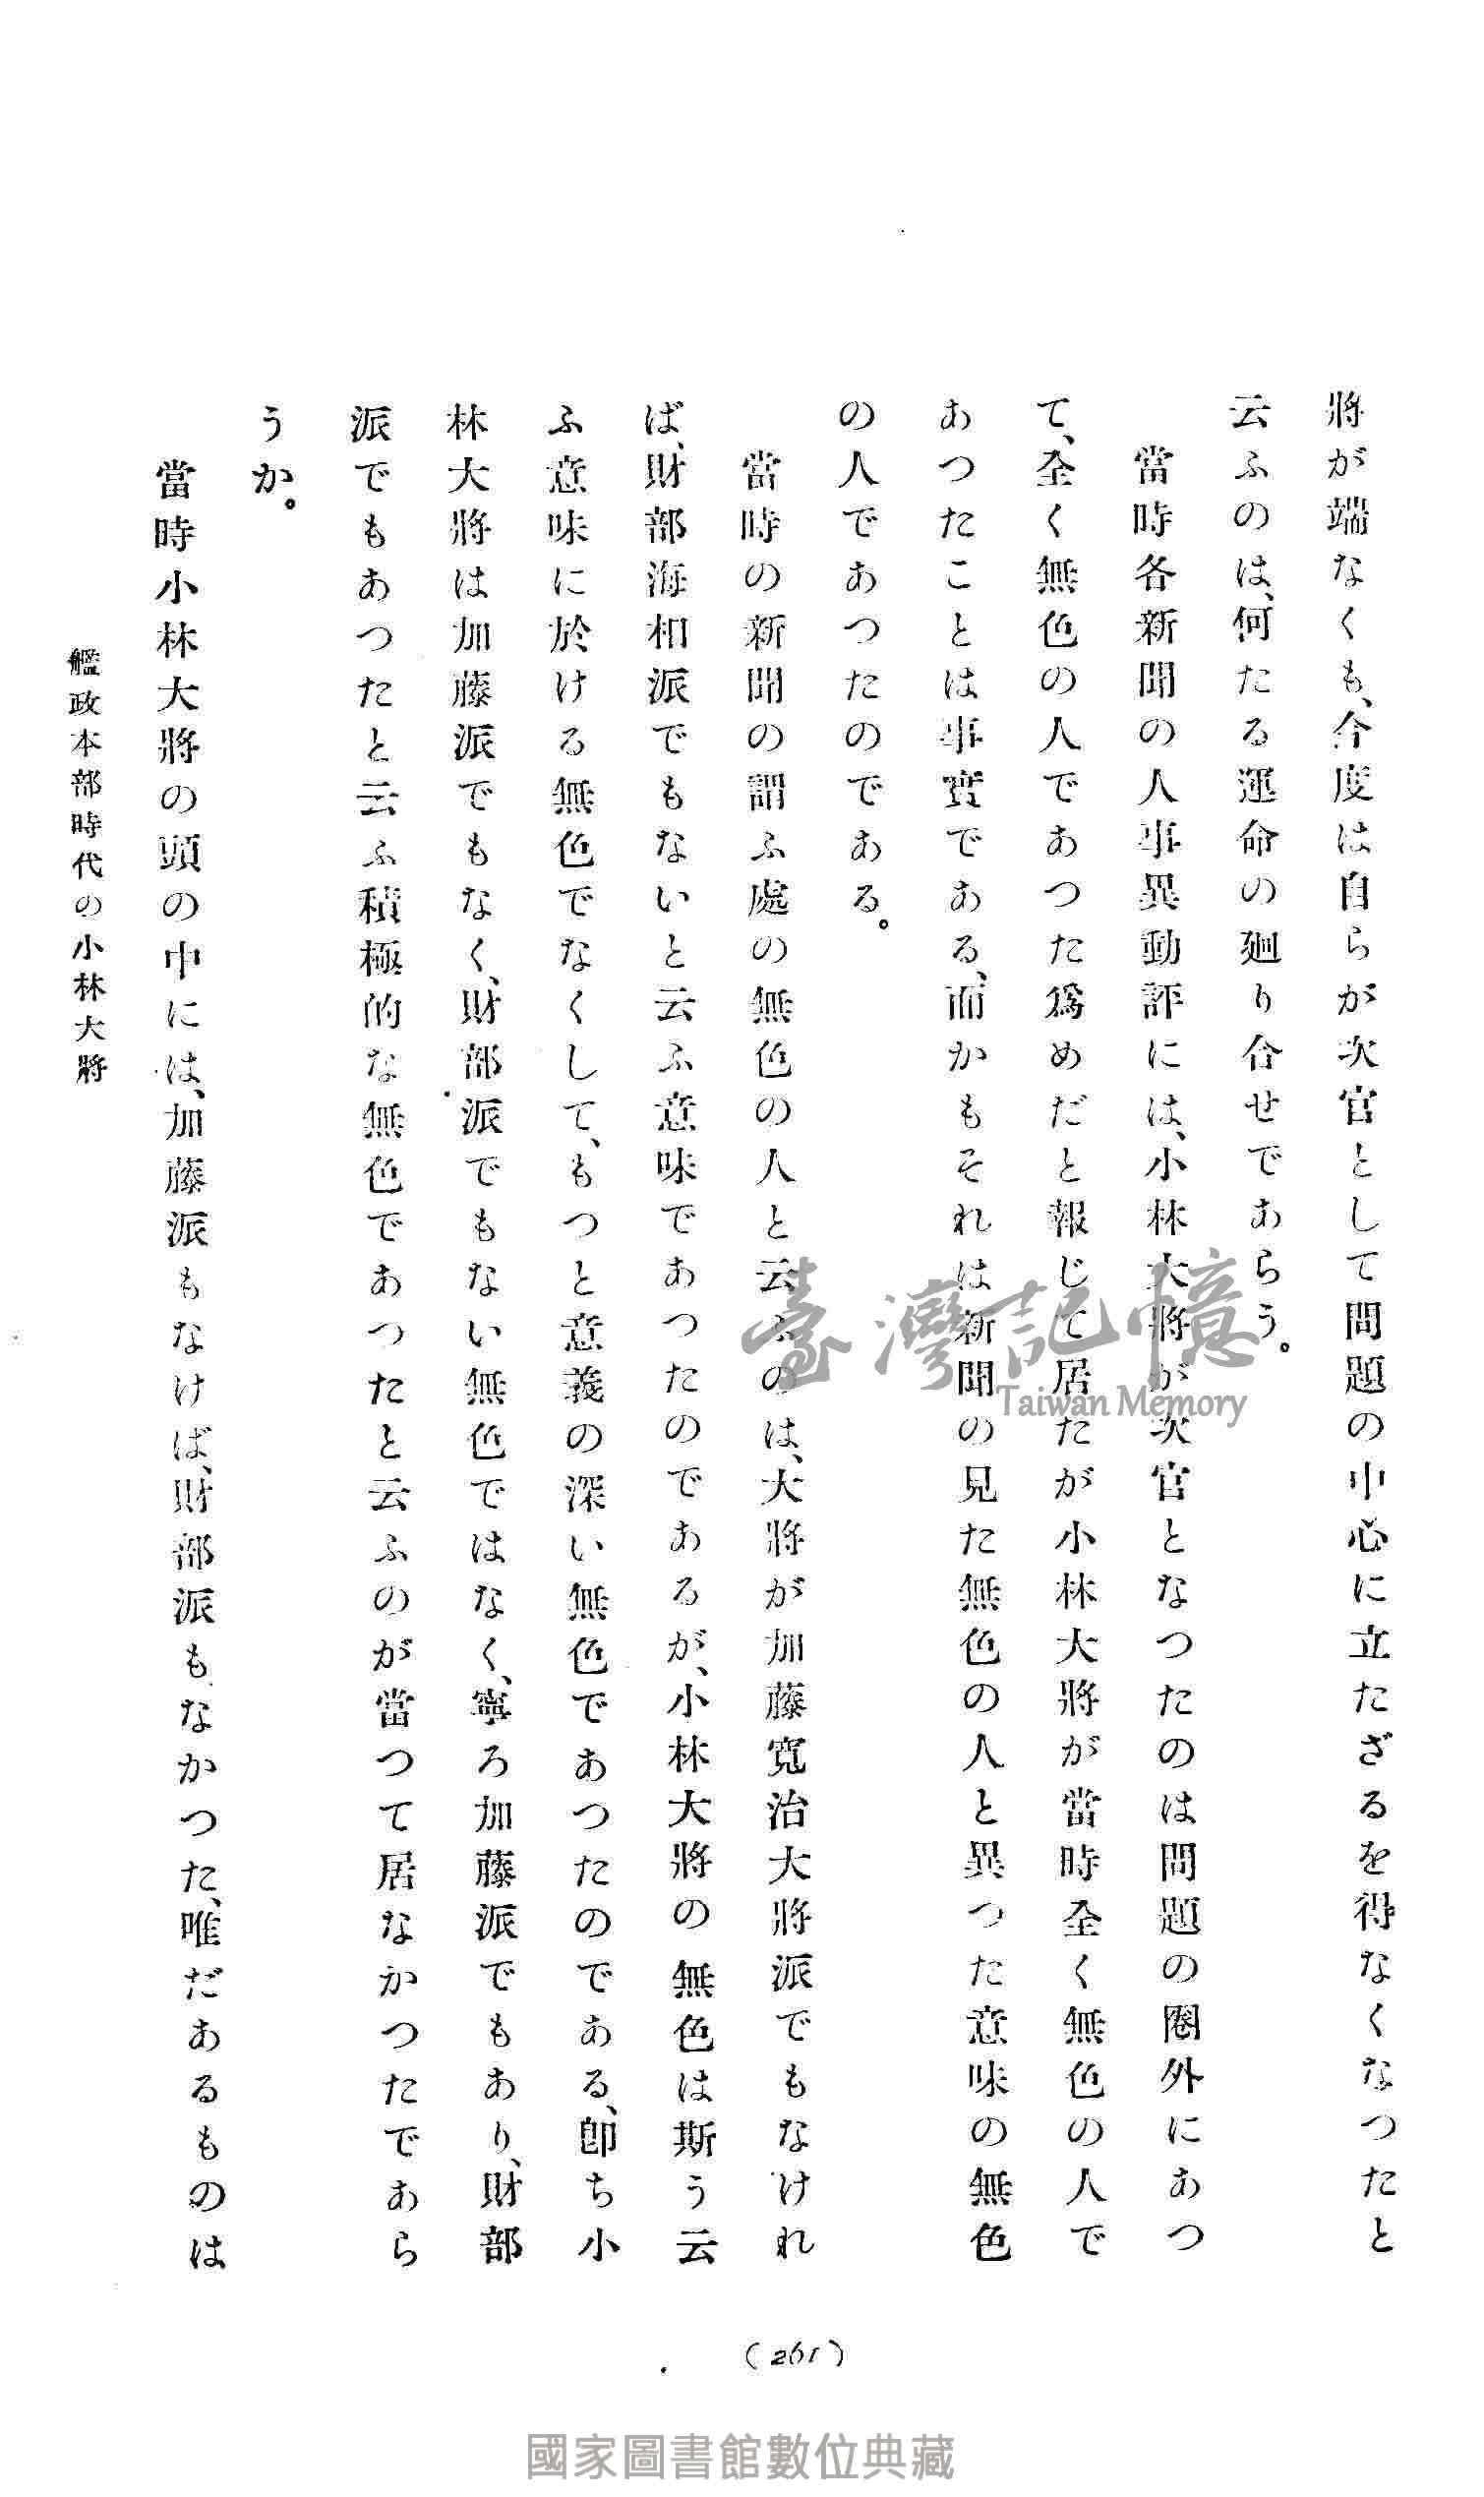 將が端なくも、今度は自らが次官として問題の中心に立たざるを得なくなつたと
云ふのは、何たる運命の廻り合せであらう。
當時各新聞の人事異動評には、小林大將が次官となつたのは問題の圏外にあつ
て、全く無色の人であつた爲めだと報じて居たが小林大將が當時全く無色の人で
あつたことは事實である、而かもそれは新聞の見た無色の人と異つた意味の無色
の人であつたのである。
當時の新聞の謂ふ處の無色の人と云ふのは、大將が加藤寛治大將派でもなけれ
ば、財部海相派でもないと云ふ意味であつたのであるが、小林大將の無色は斯う云
ふ意味に於ける無色でなくして、もつと意義の深い無色であつたのである、卽ち小
林大將は加藤派でもなく、財部派でもない無色ではなく、寧ろ加藤派でもあり、財部
派でもあつたと云ふ積極的な無色であつたと云ふのが當つて居なかつたであら
うか。
當時小林大將の頭の中には、加藤派もなければ、財部派もなかつた、唯だあるものは
艦政本部時代の小林大將
(261)
臺灣記憶
Taiwan Memory
國家圖書館數位典藏